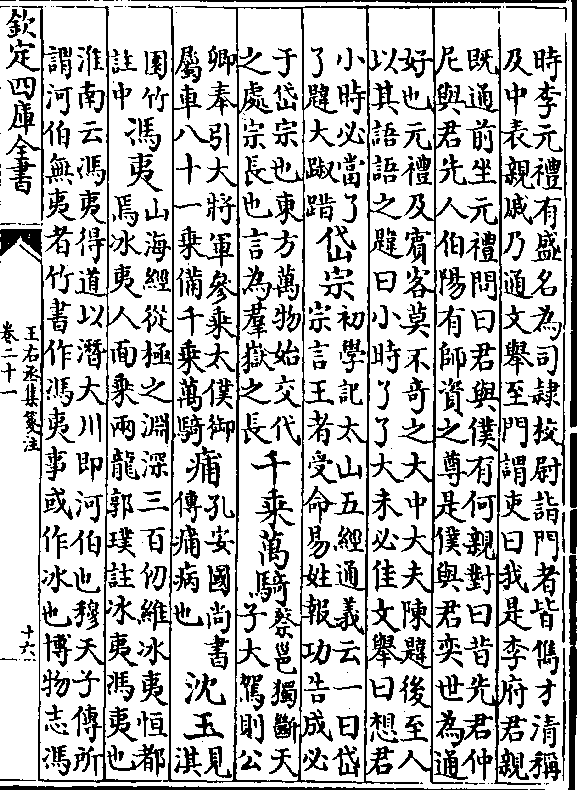 時李元禮有盛名為司隸校尉詣門者皆儁才清稱
及中表親戚乃通文舉至門謂吏曰我是李府君親
既通前坐元禮問曰君與僕有何親對曰昔先君仲
尼與君先人伯陽有師資之尊是僕與君奕世為通
好也元禮及賓客莫不奇之大中大夫陳韙後至人
以其語語之韙曰小時了了大未必佳文舉曰想君
小時必當了
了韙大踧踖
岱宗
初學記太山五經通義云一曰岱
宗言王者受命易姓報功告成必
于岱宗也東方萬物始交代
之處宗長也言為羣嶽之長
千乗萬騎
蔡邕獨斷天
子大駕則公
卿奉引大將軍參乗太僕御
屬車八十一乗備千乗萬騎
痡
孔安國尚書
傳痡病也
沈玉
見
淇
園竹
註中
馮夷
山海經從極之淵深三百仞維冰夷恒都
焉冰夷人面乗兩龍郭璞註冰夷馮夷也
淮南云馮夷得道以潛大川即河伯也穆天子傳所
謂河伯無夷者竹書作馮夷事或作冰也博物志馮
欽定四庫全書
王右丞集箋注
卷二十一
十六